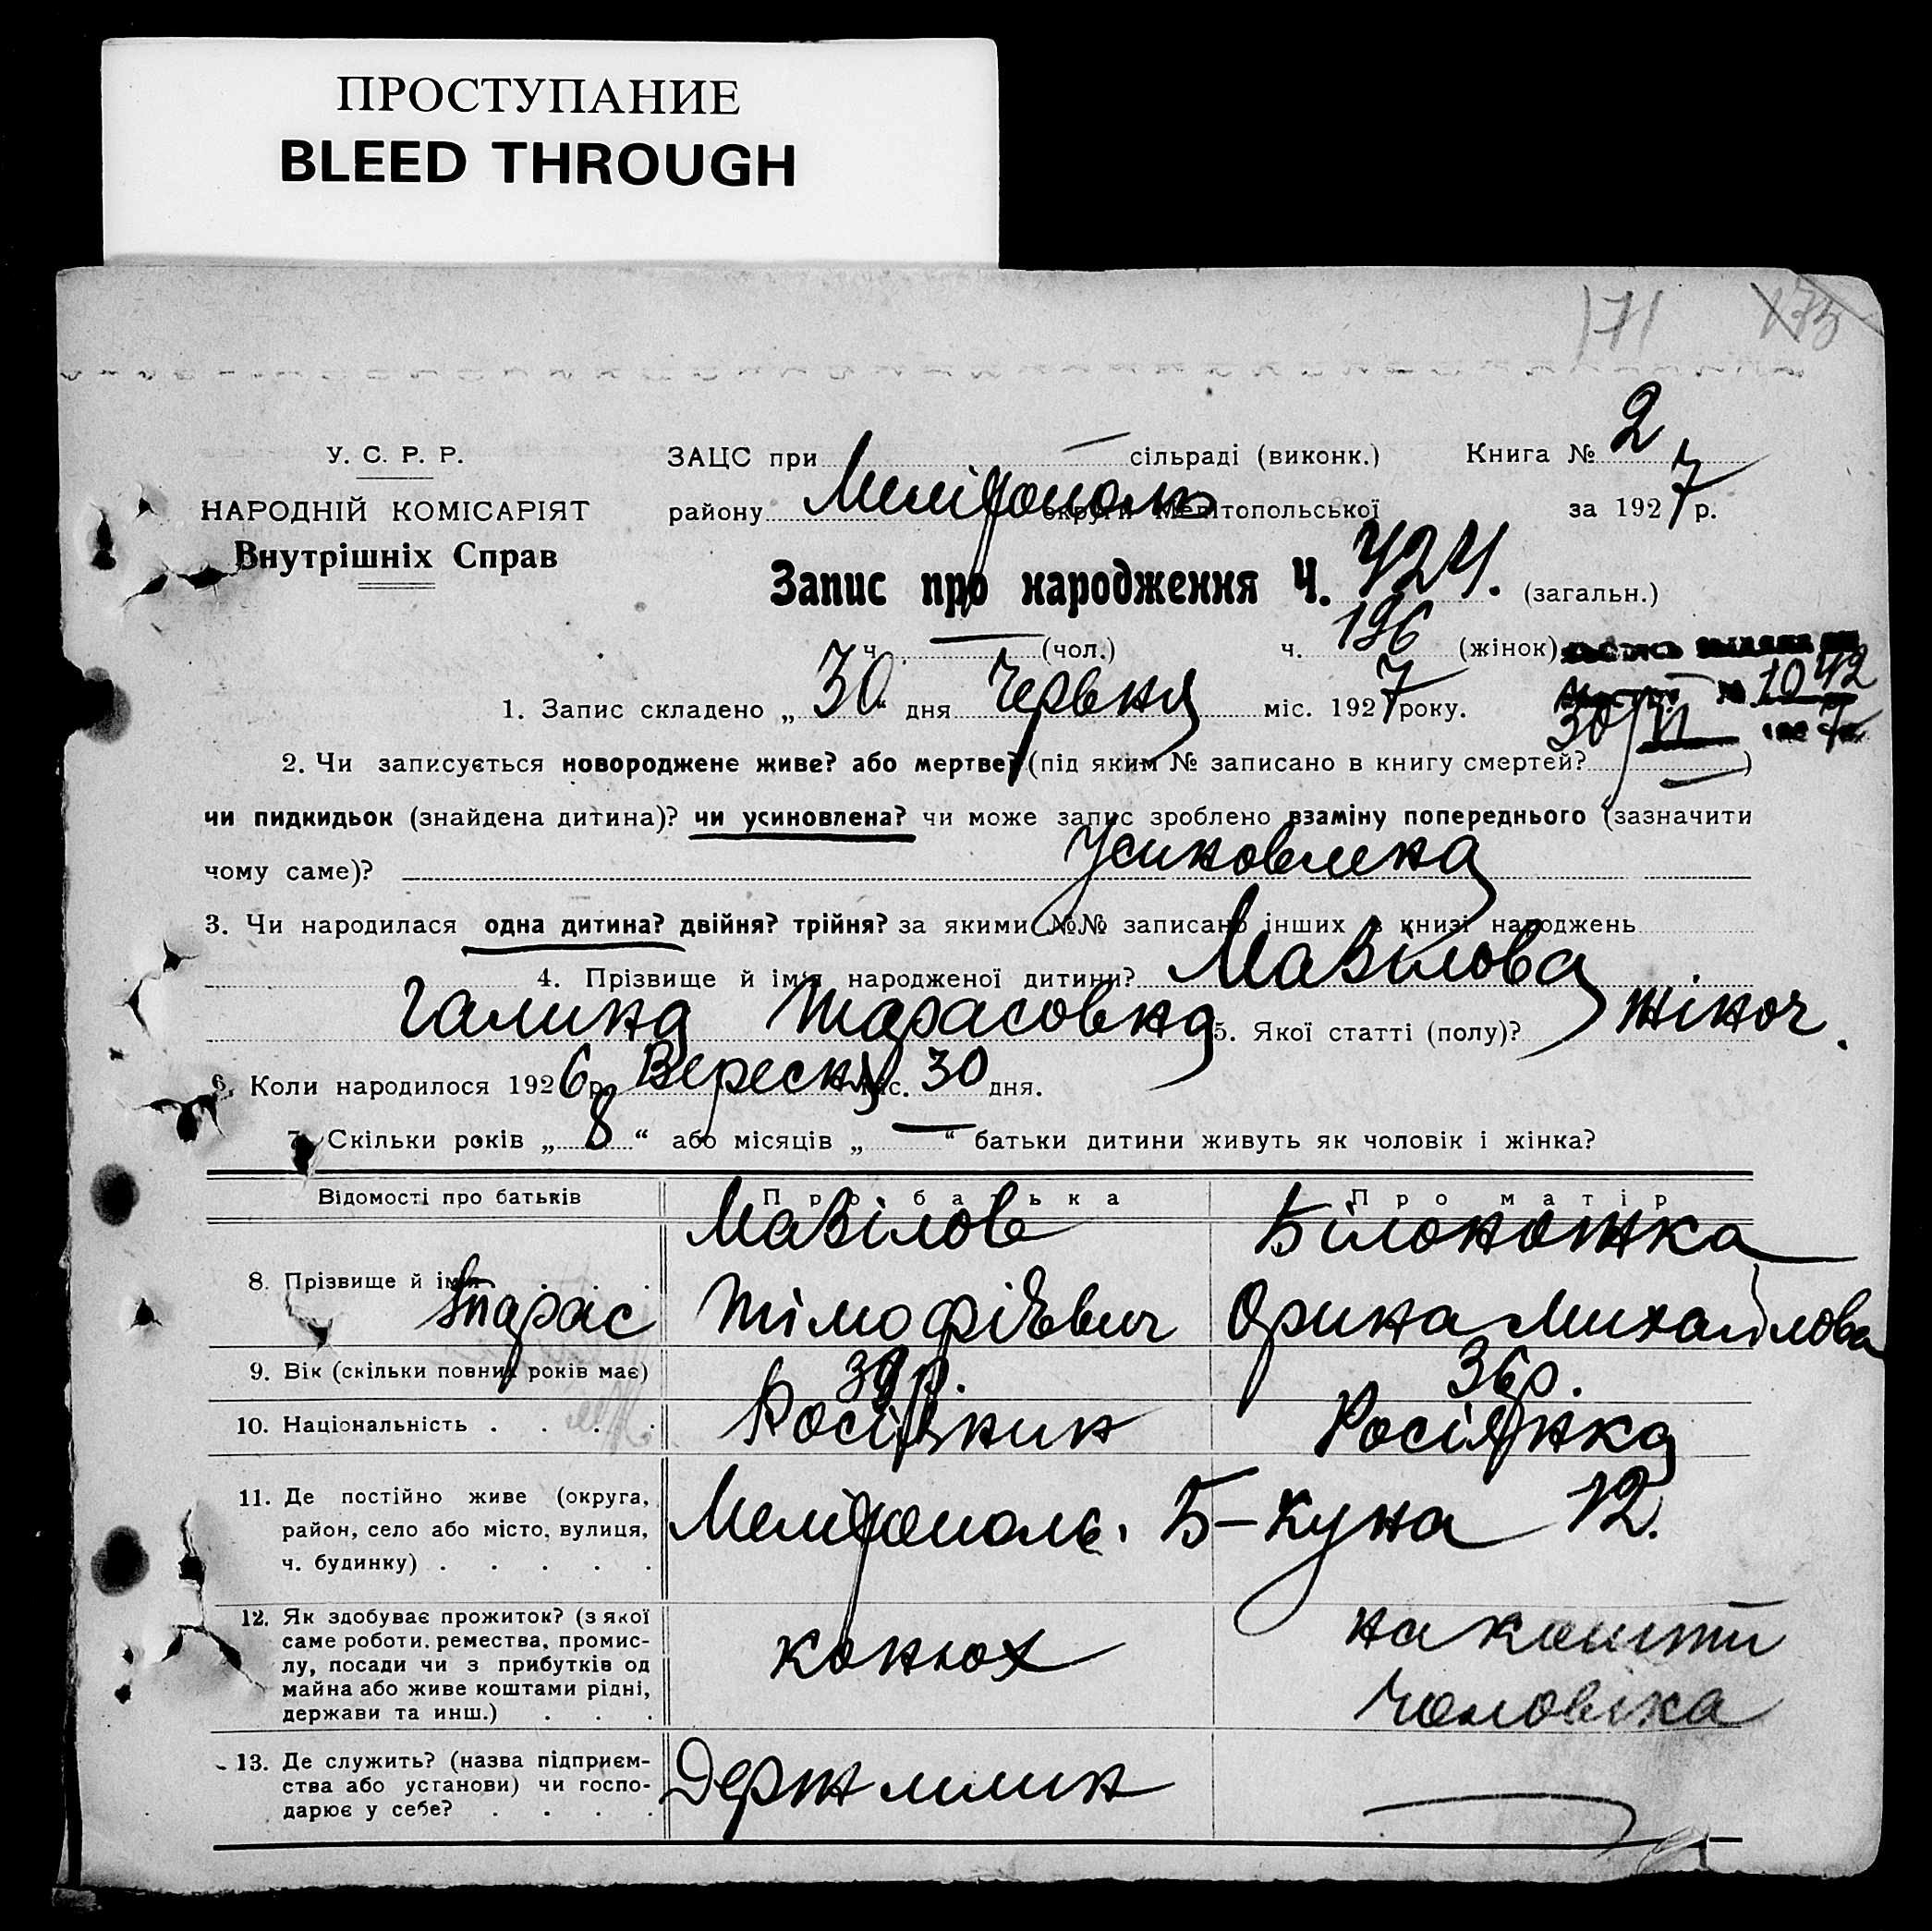 ПРОСТУПАНИЕ
BLEED THROUGH
171 175
У. С. Р. Р.
НАРОДНІЙ КОМІСАРІЯТ
Внутрішніх Справ
ЗАЦС при — сільраді (виконк.) Книга № 2
району Мелітополь округи Мелітопольської за 1927 р.
Запис про народження Ч. 424. (загальн.)
ч. — (чол.) ч. 196 (жінок)
№ 1042
1. Запис складено „30“ дня Червня міс. 1927 року.
30/VI 1927
2. Чи записується новороджене живе? або мертве? (під яким № записано в книгу смертей? —)
чи пидкидьок (знайдена дитина)? чи усиновлена? чи може запис зроблено взаміну попереднього (зазначити
чому саме)? Усиновлена
3. Чи народилася одна дитина? двійня? трійня? за якими №№ записано інших в книзі народжень
4. Прізвище й ім'я народженої дитини? Мавілова
Галина Тарасовна 5. Якої статті (полу)? жіноч.
6. Коли народилося 1926 р. Вересня міс. 30 дня.
7. Скільки років „8“ або місяців „—“ батьки дитини живуть як чоловік і жінка?
Відомості про батьків Про батька Про матір
8. Прізвище й ім'я Мавілов Тарас Тімофієвич Білоножка Орина Михайлова
9. Вік (скільки повних років має) 39 р. 36 р.
10. Національність . . . . Росіянин Росіянка
11. Де постійно живе (округа,
район, село або місто, вулиця,
ч. будинку) . . . . .
Мелітополь. Б-Куна 12.
12. Як здобуває прожиток? (з якої
саме роботи, ремества, промис-
лу, посади чи з прибутків од
майна або живе коштами рідні,
держави та инш.) . . .
конюх
на кошти
чоловіка
13. Де служить? (назва підприєм-
ства або установи) чи госпо-
дарює у себе? . . . .
Держмлин —